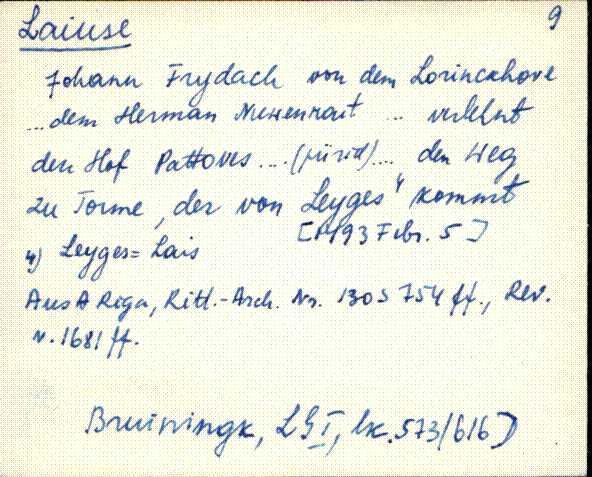 Laiuse 9
Johann Frydach von dem Lorinckhove
... dem Herman Nuwenrait ... verlehnt
den Hof Pattoves .... (jürid) ... den Weg
zu Torme, der von Leyges⁴ kommt
[1493 Febr. 5]
4) Leyges = Lais
Aus A Riga, Ritt.-Arch. Nr. 1305 754 ff., Rev.
v. 1681 ff.
Bruiningk, LG I, lk. 573 (616)